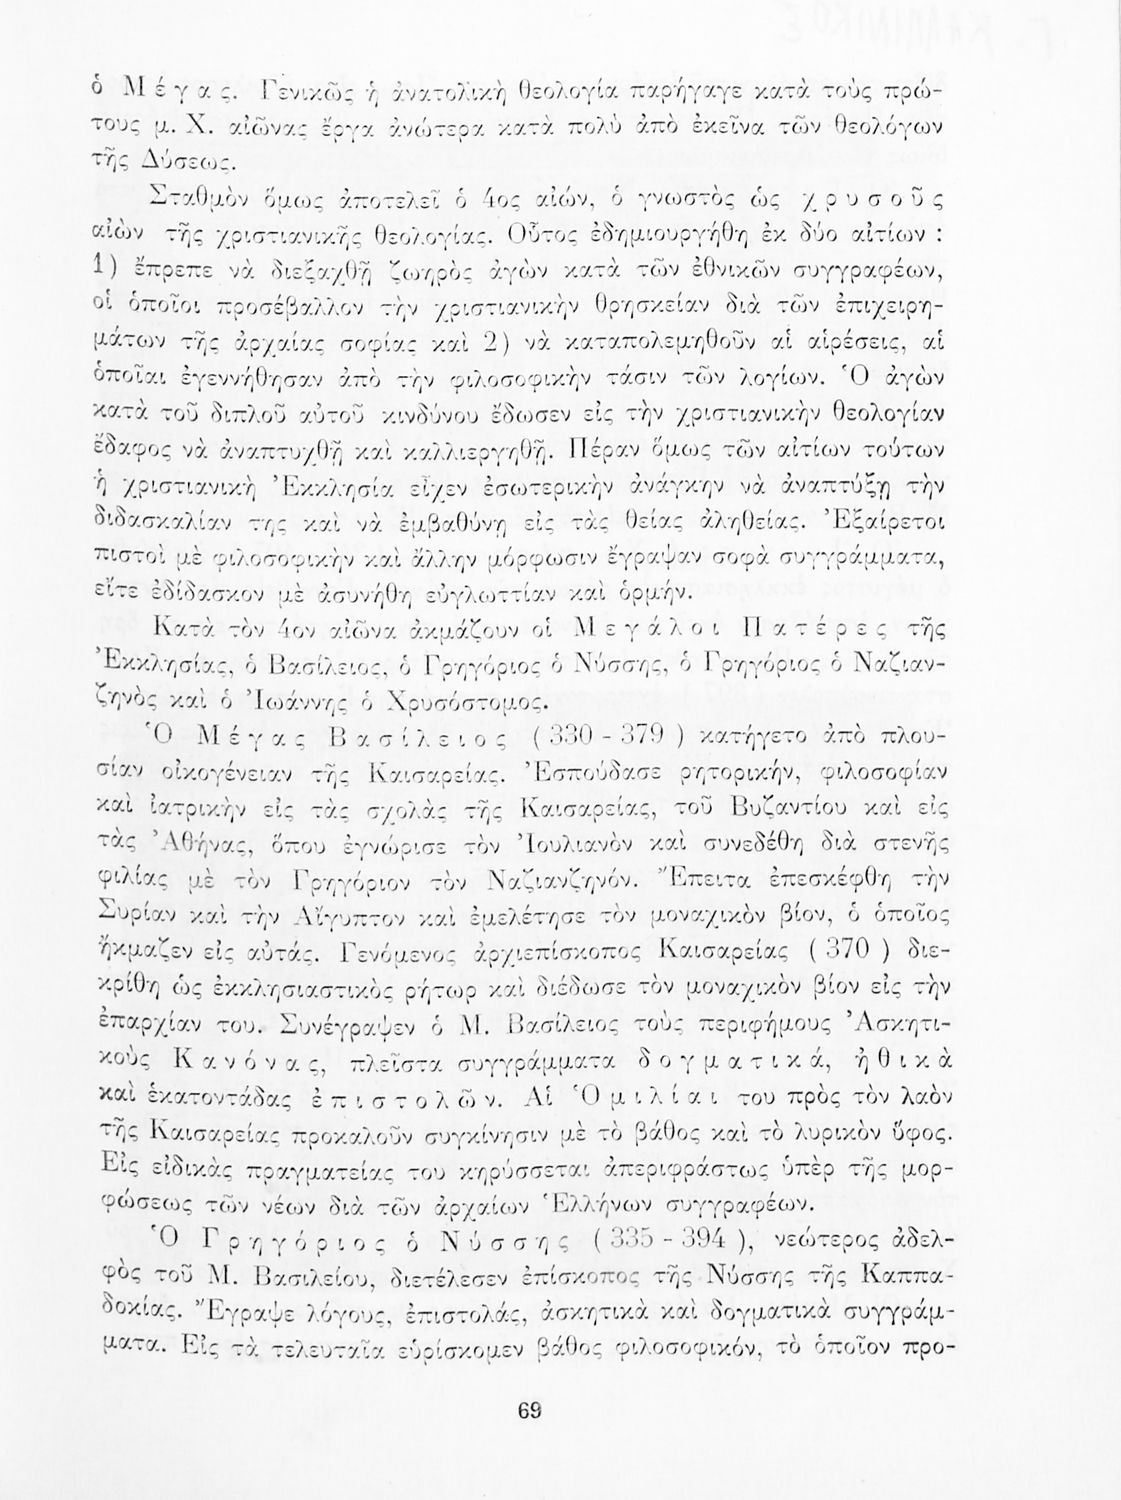 ὁ Μέγας. Γενικῶς ἡ ἀνατολικὴ θεολογία παρήγαγε κατὰ τοὺς πρώ-
τους μ. Χ. αἰῶνας ἔργα ἀνώτερα κατὰ πολὺ ἀπὸ ἐκεῖνα τῶν θεολόγων
τῆς Δύσεως.
Σταθμὸν ὅμως ἀποτελεῖ ὁ 4ος αἰών, ὁ γνωστὸς ὡς χρυσοῦς
αἰὼν τῆς χριστιανικῆς θεολογίας. Οὗτος ἐδημιουργήθη ἐκ δύο αἰτίων :
1) ἔπρεπε νὰ διεξαχθῇ ζωηρὸς ἀγὼν κατὰ τῶν ἐθνικῶν συγγραφέων,
οἱ ὁποῖοι προσέβαλλον τὴν χριστιανικὴν θρησκείαν διὰ τῶν ἐπιχειρη-
μάτων τῆς ἀρχαίας σοφίας καὶ 2) νὰ καταπολεμηθοῦν αἱ αἱρέσεις, αἱ
ὁποῖαι ἐγεννήθησαν ἀπὸ τὴν φιλοσοφικὴν τάσιν τῶν λογίων. Ὁ ἀγὼν
κατὰ τοῦ διπλοῦ αὐτοῦ κινδύνου ἔδωσεν εἰς τὴν χριστιανικὴν θεολογίαν
ἔδαφος νὰ ἀναπτυχθῇ καὶ καλλιεργηθῇ. Πέραν ὅμως τῶν αἰτίων τούτων
ἡ χριστιανικὴ Ἐκκλησία εἶχεν ἐσωτερικὴν ἀνάγκην νὰ ἀναπτύξῃ τὴν
διδασκαλίαν της καὶ νὰ ἐμβαθύνῃ εἰς τὰς θείας ἀληθείας. Ἐξαίρετοι
πιστοὶ μὲ φιλοσοφικὴν καὶ ἄλλην μόρφωσιν ἔγραψαν σοφὰ συγγράμματα,
εἴτε ἐδίδασκον μὲ ἀσυνήθη εὐγλωττίαν καὶ ὁρμήν.
Κατὰ τὸν 4ον αἰῶνα ἀκμάζουν οἱ Μεγάλοι Πατέρες τῆς
Ἐκκλησίας, ὁ Βασίλειος, ὁ Γρηγόριος ὁ Νύσσης, ὁ Γρηγόριος ὁ Ναζιαν-
ζηνὸς καὶ ὁ Ἰωάννης ὁ Χρυσόστομος.
Ὁ Μέγας Βασίλειος (330 - 379) κατήγετο ἀπὸ πλου-
σίαν οἰκογένειαν τῆς Καισαρείας. Ἐσπούδασε ρητορικήν, φιλοσοφίαν
καὶ ἰατρικὴν εἰς τὰς σχολὰς τῆς Καισαρείας, τοῦ Βυζαντίου καὶ εἰς
τὰς Ἀθήνας, ὅπου ἐγνώρισε τὸν Ἰουλιανὸν καὶ συνεδέθη διὰ στενῆς
φιλίας μὲ τὸν Γρηγόριον τὸν Ναζιανζηνόν. Ἔπειτα ἐπεσκέφθη τὴν
Συρίαν καὶ τὴν Αἴγυπτον καὶ ἐμελέτησε τὸν μοναχικὸν βίον, ὁ ὁποῖος
ἤκμαζεν εἰς αὐτάς. Γενόμενος ἀρχιεπίσκοπος Καισαρείας (370) διε-
κρίθη ὡς ἐκκλησιαστικὸς ρήτωρ καὶ διέδωσε τὸν μοναχικὸν βίον εἰς τὴν
ἐπαρχίαν του. Συνέγραψεν ὁ Μ. Βασίλειος τοὺς περιφήμους Ἀσκητι-
κοὺς Κανόνας, πλεῖστα συγγράμματα δογματικά, ἠθικὰ
καὶ ἑκατοντάδας ἐπιστολῶν. Αἱ Ὁμιλίαι του πρὸς τὸν λαὸν
τῆς Καισαρείας προκαλοῦν συγκίνησιν μὲ τὸ βάθος καὶ τὸ λυρικὸν ὕφος.
Εἰς εἰδικὰς πραγματείας του κηρύσσεται ἀπεριφράστως ὑπὲρ τῆς μορ-
φώσεως τῶν νέων διὰ τῶν ἀρχαίων Ἑλλήνων συγγραφέων.
Ὁ Γρηγόριος ὁ Νύσσης (335 - 394), νεώτερος ἀδελ-
φὸς τοῦ Μ. Βασιλείου, διετέλεσεν ἐπίσκοπος τῆς Νύσσης τῆς Καππα-
δοκίας. Ἔγραψε λόγους, ἐπιστολάς, ἀσκητικὰ καὶ δογματικὰ συγγράμ-
ματα. Εἰς τὰ τελευταῖα εὑρίσκομεν βάθος φιλοσοφικόν, τὸ ὁποῖον προ-
69